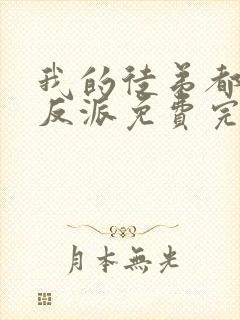 我的徒弟都
反派免費完
月本無光